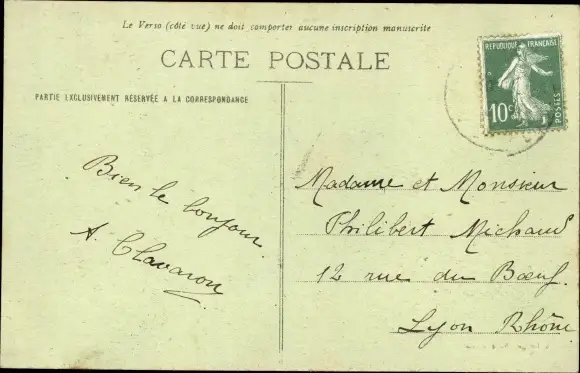 Le Verso (côté vue) ne doit comporter aucune inscription manuscrite
CARTE POSTALE
PARTIE EXCLUSIVEMENT RÉSERVÉE A LA CORRESPONDANCE
REPUBLIQUE FRANÇAISE
10c
POSTES
Bien le bonjour
A. Clavaron
Madame et Monsieur
Philibert Michaud
12 rue du Bœuf.
Lyon Rhône